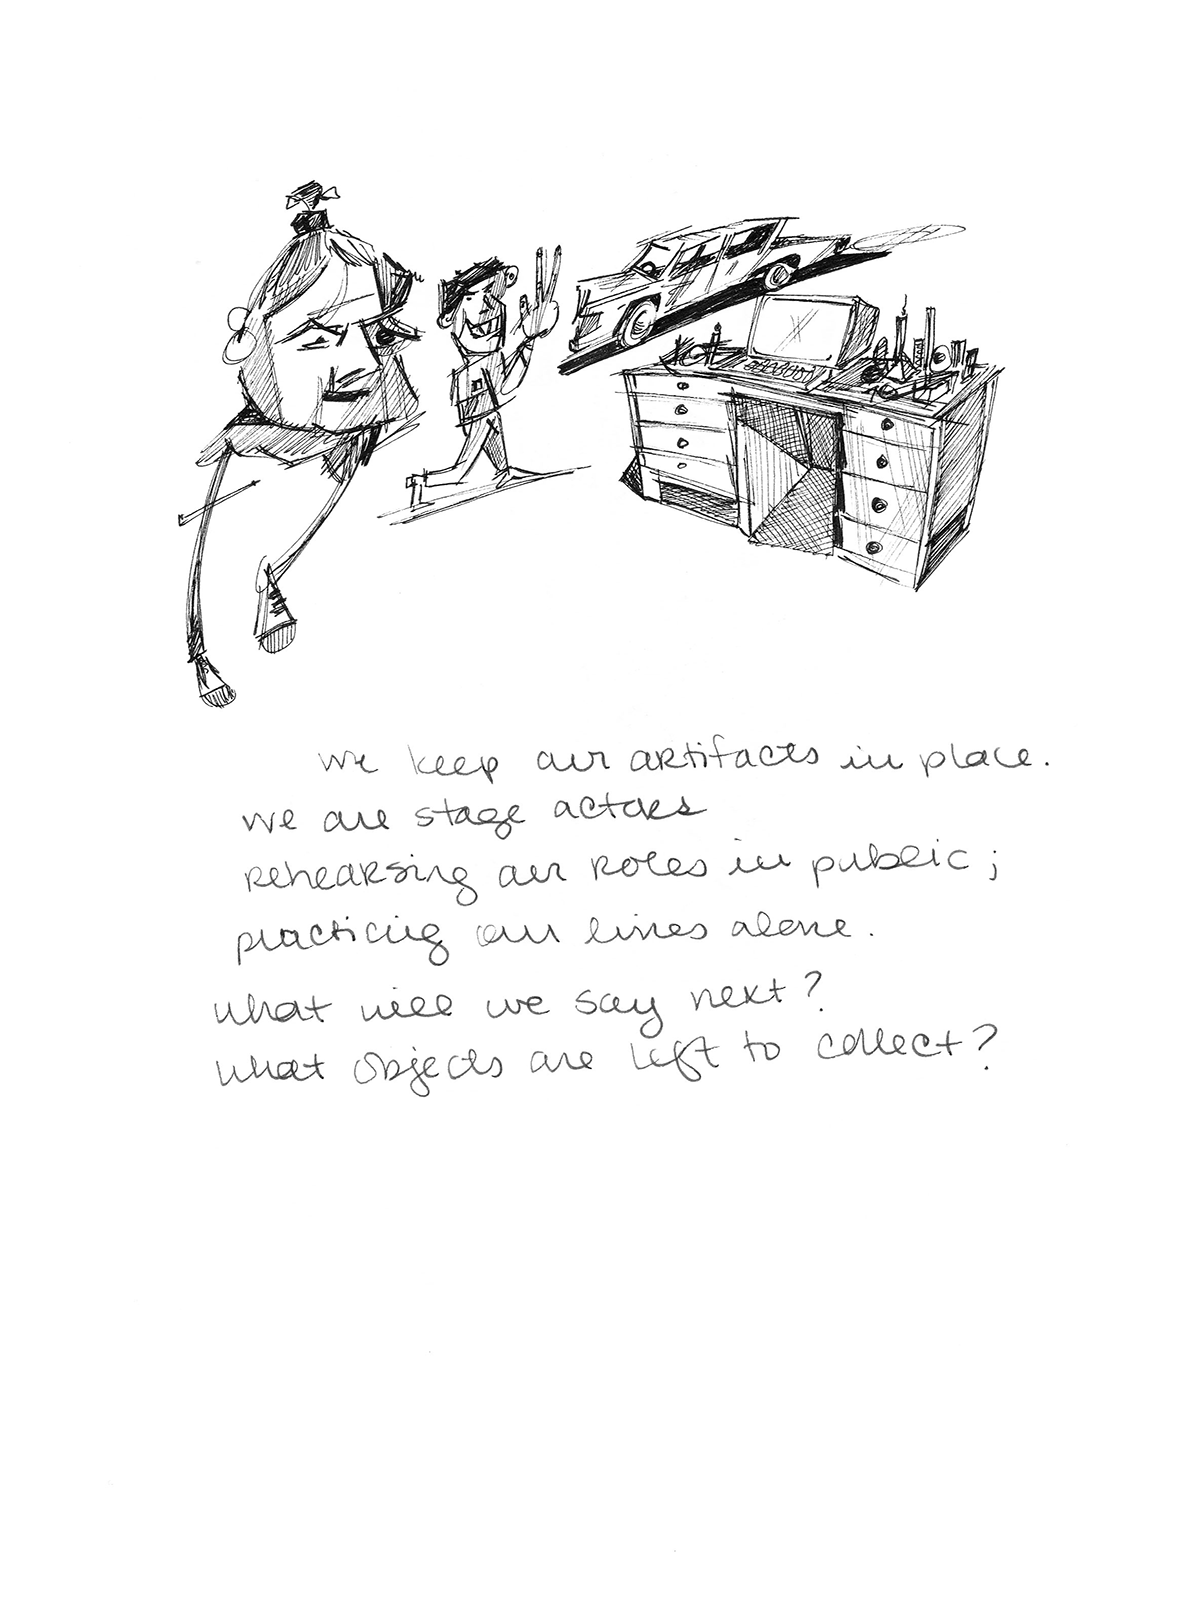 we keep our artifacts in place.
we are stage actors
rehearsing our roles in public;
practicing our lines alone.
what will we say next?
what objects are left to collect?